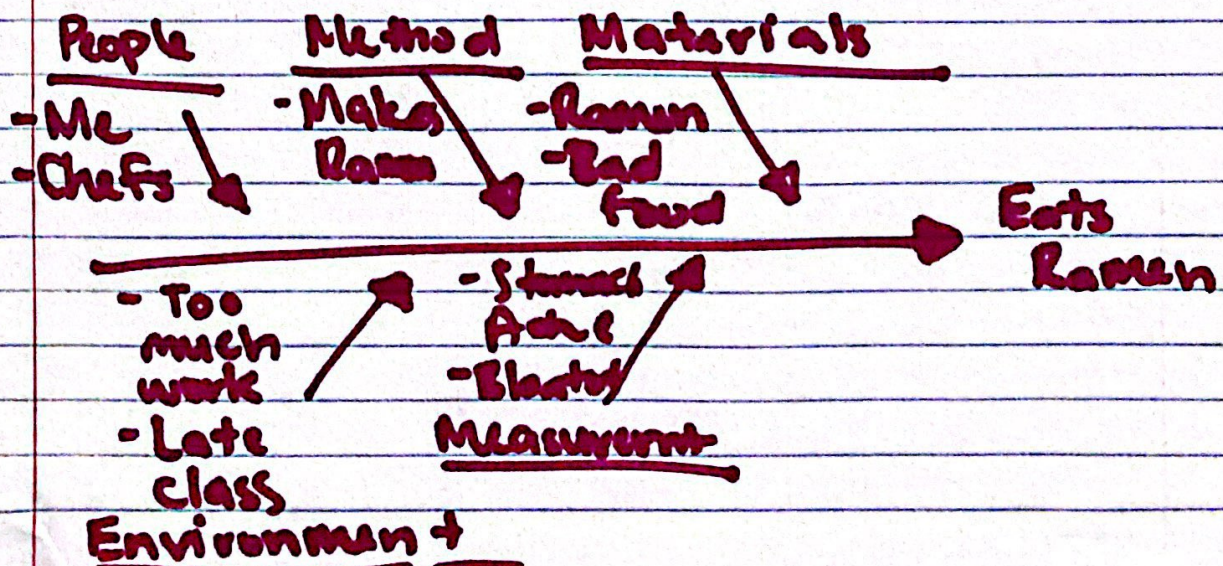 People
- Me
- Chefs
Method
- Makes
Ramen
Materials
- Ramen
- Bad
Food
Eats
Ramen
- Too
much
work
- Late
class
Environment
- Stomach
Ache
- Bloated
Measurement